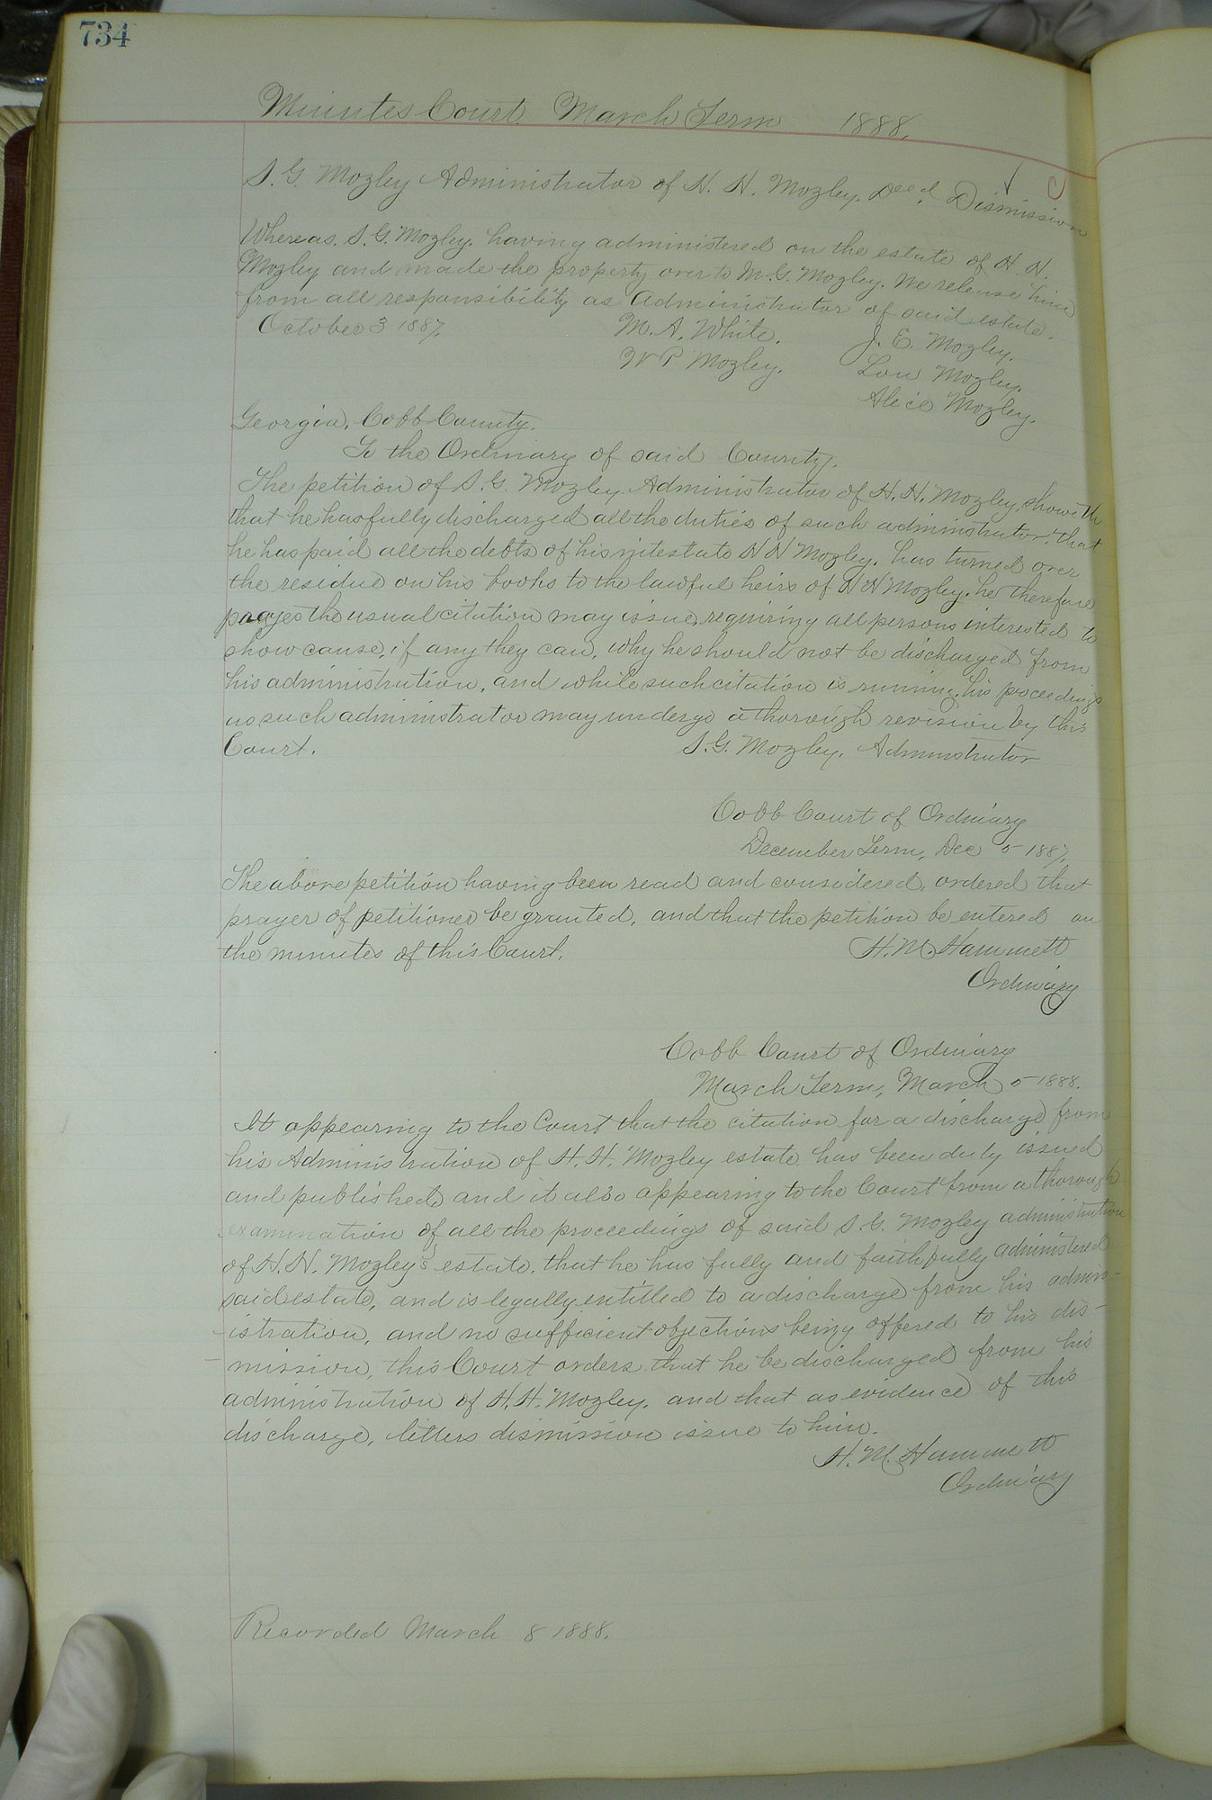 734
Minutes Court March Term 1888.
S. G. Mozley Administrator of H. H. Mozley. Deed. Dismission
Whereas. S. G. Mozley. having administered on the estate of H. H.
Mozley and made the property over to M. G. Mozley. We release him
from all responsibility as Administrator of said estate.
October 3 1887.
M. A. White. J. E. Mozley.
W P Mozley. Lou Mozley.
Alice Mozley.
Georgia, Cobb County.
To the Ordinary of said County.
The petition of S. G. Mozley Administrator of H. H. Mozley, showeth
that he has fully discharged all the duties of such administrator. that
he has paid all the debts of his intestate H H Mozley. has turned over
the residue on his books to the lawful heirs of H H Mozley. he therefore
prayes the usual citation may issue, requiring all persons interested to
show cause, if any they can, why he should not be discharged from
his administration, and while such citation is running, his proceedings
as such administrator may undergo a thorough revision by this
Court. S. G. Mozley. Administrator
Cobb Court of Ordinary
December Term, Dec 5 1887,
The above petition having been read and considered, ordered that
prayer of petitioner be granted, and that the petition be entered on
the minutes of this Court. H. M. Hammett
Ordinary
Cobb Court of Ordinary
March Term, March 5 1888.
It appearing to the Court that the citation for a discharge from
his Administration of H. H. Mozley estate has been duly issued
and published, and it also appearing to the Court from a thorough
examination of all the proceedings of said S. G. Mozley administration
of H. H. Mozley's estate. that he has fully and faithfully administered
said estate, and is legally entitled to a discharge from his admin-
-istration. and no sufficient objections being offered to his dis-
-mission, this Court orders that he be discharged from his
administration of H. H. Mozley. and that as evidence of this
discharge, letters dismission issue to him.
H. M. Hammett
Ordinary
Recorded March 8 1888.